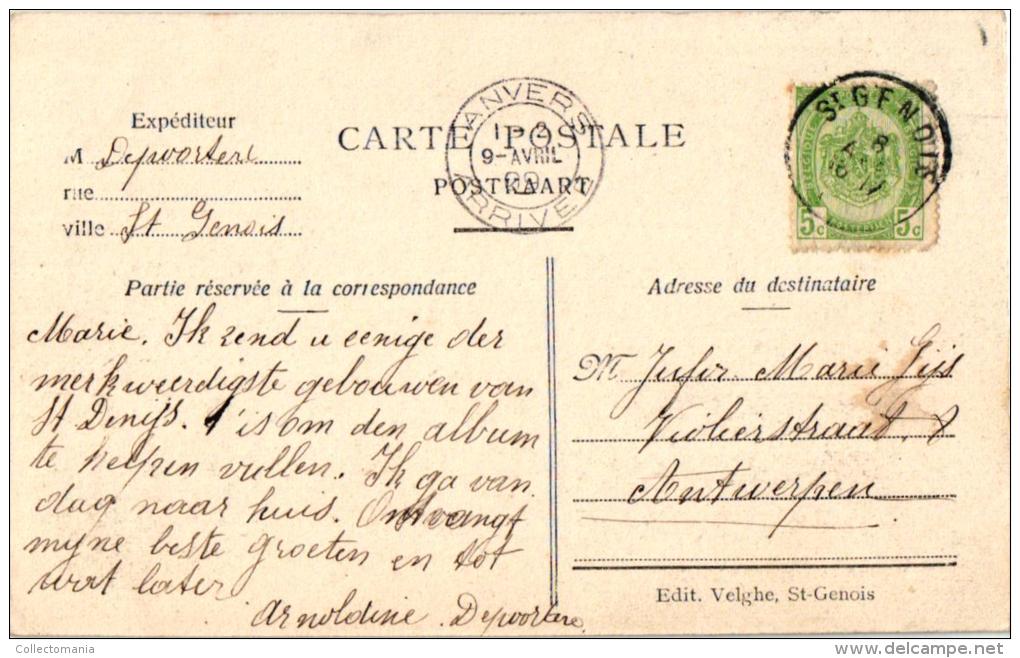 CARTE POSTALE
POSTKAART
Expéditeur
M Depoortere
rue
ville St Genois
ANVERS
1-2
9-AVRIL
09
ARRIVEE
ST GENOIS
8
5c 5c
Partie réservée à la correspondance
Marie. Ik zend u eenige der
merkweerdigste gebouwen van
St Denijs. 't is om den album
te helpen vullen. Ik ga van
dag naar huis. Ontvangt
mijne beste groeten en tot
wat later
Arnoldine Depoortere
Adresse du destinataire
M Jufvr Marie Gijs
Violierstraat
Antwerpen
Edit. Velghe, St-Genois
Collectomania
delcampe.net